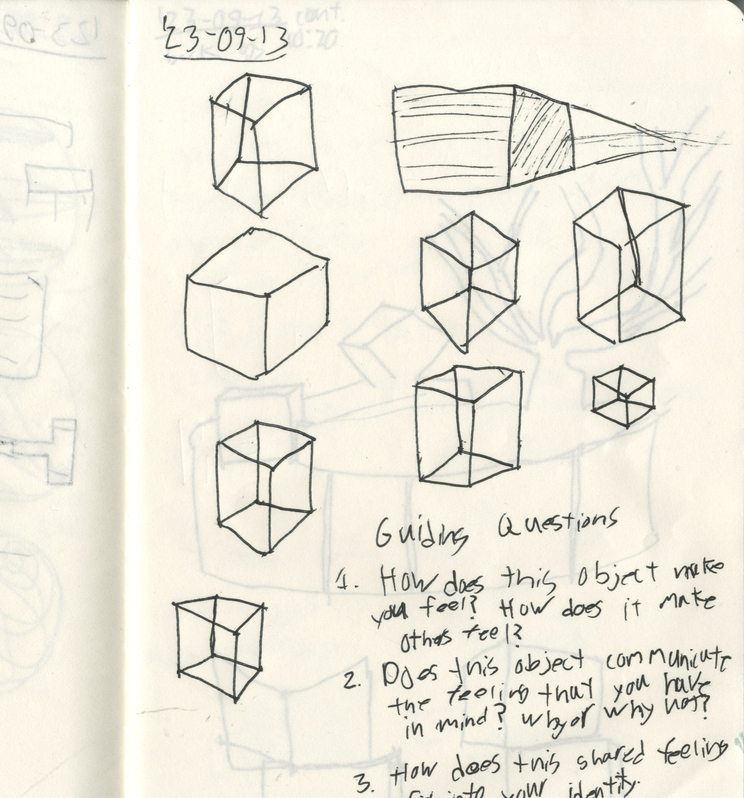 '23-09-13
Guiding Questions
1. How does this object make
you feel? How does it make
others feel?
2. Does this object communicate
the feeling that you have
in mind? Why or why not?
3. How does this shared feeling
into your identity.